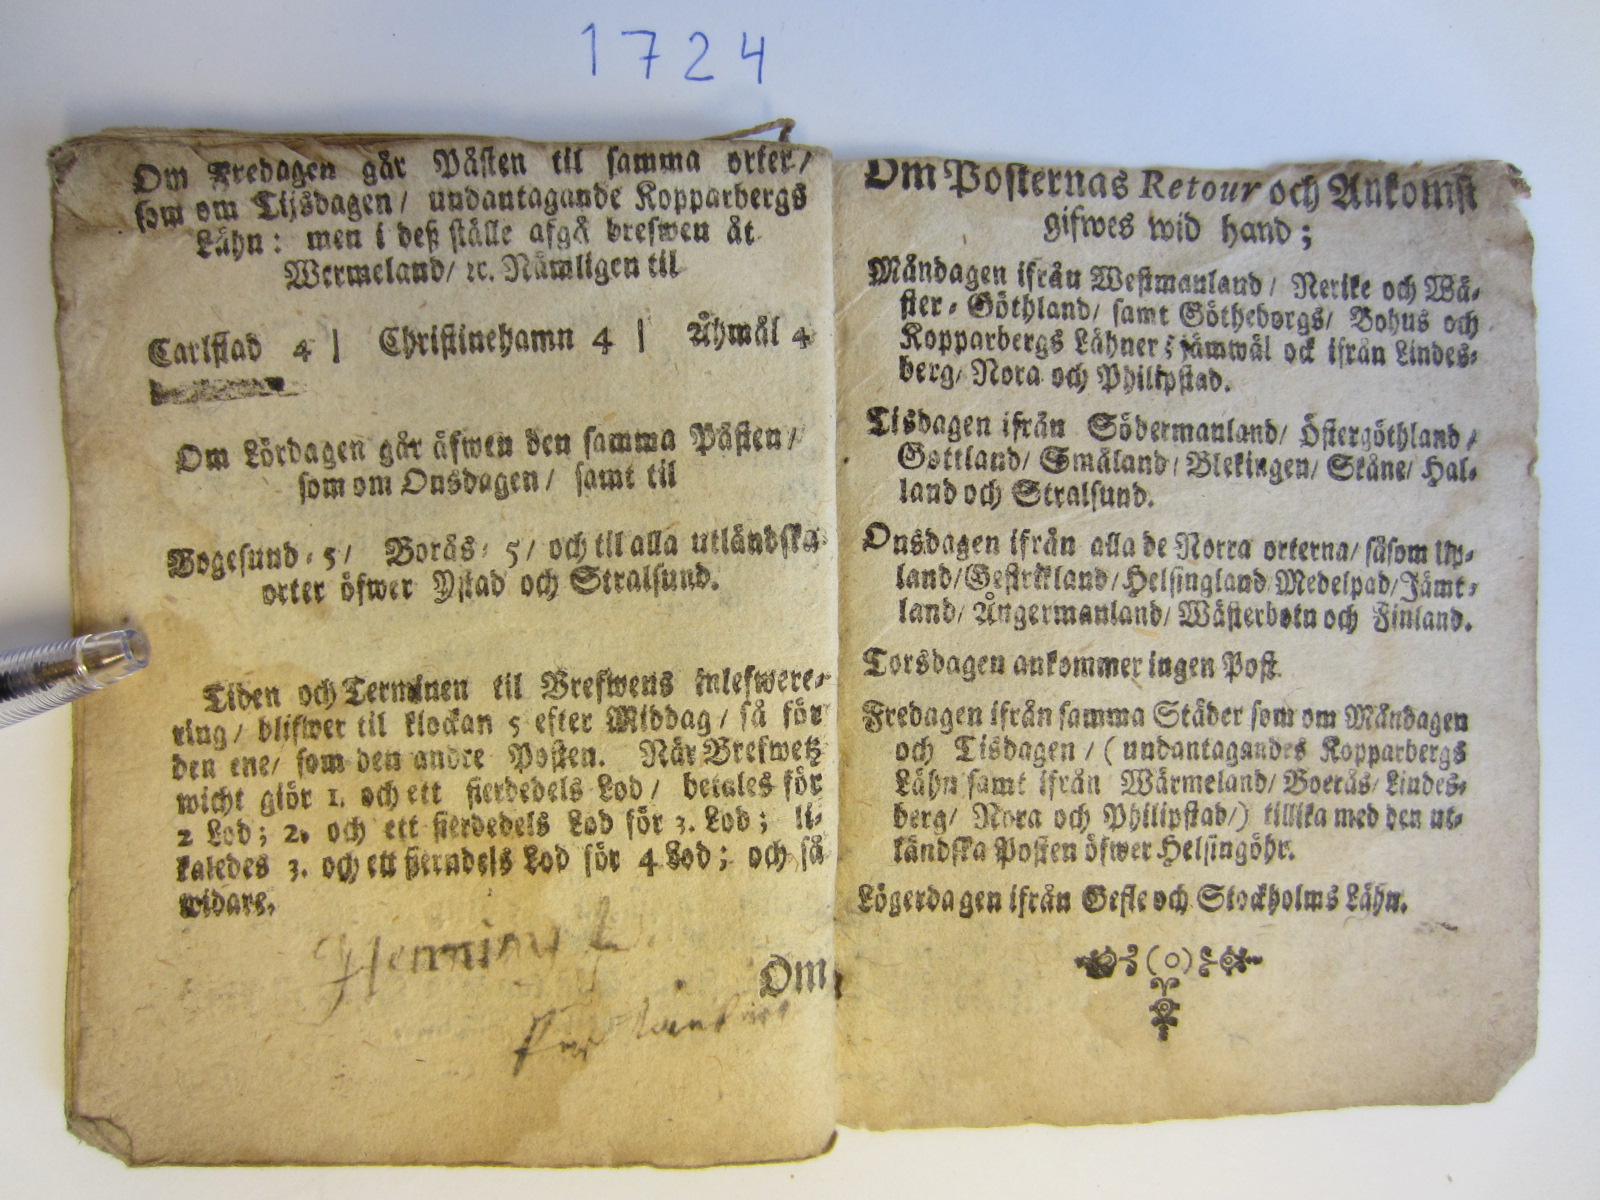 1724
Om Fredagen går Påsten til samma orter/
som om Tijsdagen/ undantagande Kopparbergs
Lähn: men i deß ställe afgå brefwen åt
Wermeland/ ꝛc. Nämligen til
Carlstad 4 | Christinehamn 4 | Åhmål 4
Om Lördagen går äfwen den samma Påsten/
som om Onsdagen/ samt til
Bogesund ⸗ 5/ Borås ⸗ 5/ och til alla utländska
orter öfwer Ystad och Stralsund.
Tiden och Terminen til Brefwens inlefwere⸗
ring/ blifwer til klockan 5 efter Middag/ så för
den ene/ som den andre Posten. När Brefwetz
wicht giör 1. och ett fierdedels Lod/ betales för
2 Lod; 2. och ett fierdedels Lod för 3. Lod; li⸗
kaledes 3. och ett fierndels Lod för 4 Lod; och så
widare.
Om
Om Posternas Retour och Ankomst
gifwes wid hand;
Måndagen ifrån Westmanland/ Nerike och Wä⸗
ster⸗Göthland/ samt Götheborgs/ Bohus och
Kopparbergs Lähner; jämwäl ock ifrån Lindes⸗
berg/ Nora och Philipstad.
Tisdagen ifrån Södermanland/ Östergöthland/
Gottland/ Småland/ Blekingen/ Skåne/ Hal⸗
land och Stralsund.
Onsdagen ifrån alla de Norra orterna/ såsom Up⸗
land/ Gestrikland/ Helsingland Medelpad/ Jämt⸗
land/ Ångermanland/ Wästerbotn och Finland.
Torsdagen ankommer ingen Post.
Fredagen ifrån samma Städer som om Måndagen
och Tisdagen/ (undantagandes Kopparbergs
Lähn samt ifrån Wärmeland/ Boerås/ Lindes⸗
berg/ Nora och Philipstad/) tillika med den ut⸗
ländska Posten öfwer Helsingöhr.
Lögerdagen ifrån Gefle och Stockholms Lähn.